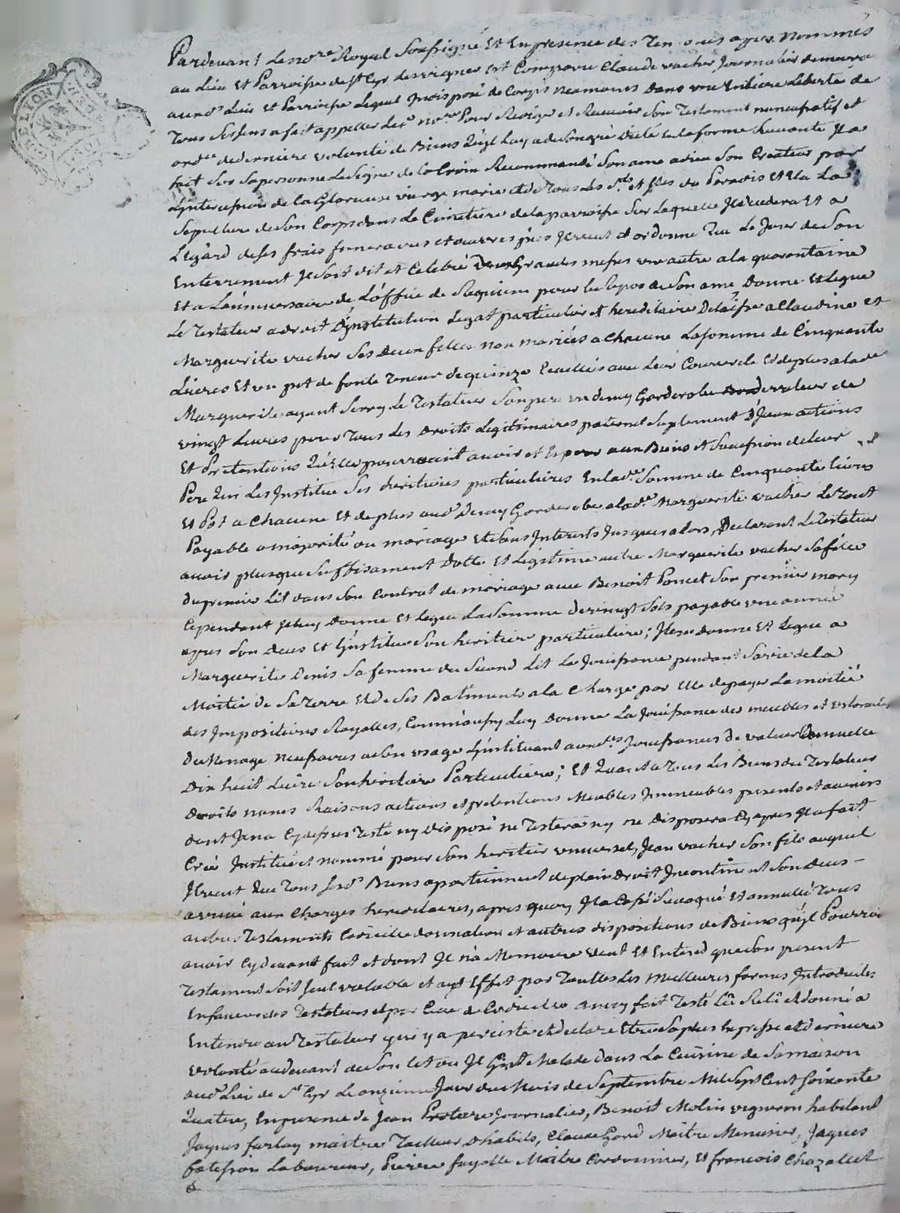 Pardevant Le no.re Royal Soussigné Et En presence des Temoins apres nommés
au Lieu Et Parroisse de St Cyr les vignes Est Comparu Claude vacher Journalier demeurant
aud. Lieu Et Parroisse Lequel Indisposé de Corps neamoins dans une Entiere Liberté de
Tous Ses Sens a fait appeller Led. no.re Pour Rediger et Recevoir Son Testament nuncupatif et
ord.ce de derniere volonté de Biens qu'il Luy a de Son gré dicté en la forme Suivante Il a
fait Sur Sa personne Le Signe de la Croix Recommandé Son ame a dieu Son Createur par
L'intercession de La Glorieuse vierge marie et de Tous Les S.ts et S.tes du Paradis Elu La
Sepulture de Son Corps dans Le Cimetiere de la parroisse Sur Laquelle Il decedera Et a
L'Egard de Ses frais funeraires et œuvres pies Il veut et ordonne que Le Jour de Son
Enterrement Il Soit dit et Celebré Deux Grandes messes une autre a la quarantaine
Et a L'anniversaire de L'office de Requiem pour Le Repos de Son ame Donne Et Legue
Le Testateur a droit d'institution Legat particulier et hereditaire Delaisse a Claudine et
Marguerite vacher Ses deux filles non mariées a chacune La Somme de Cinquante
Livres Et un pot de fonte Teneur de quinze Ecuellées avec Leur Couvercle Et de plus a lade
Marguerite ayant Servy Le Testateur Son pere un demy Garderobe de valeur de
vingt Livres pour Tous Les Droits Legitimaires paternels Suplement D'Iceux actions
Et Pretentions qu'Elles pourroient avoir et Esperer aux Biens et Succession de Leur
Pere qui Les Institue Ses heritieres particulieres En lad. Somme de Cinquante Livres
Et Pot a Chacune Et de plus aud. Demy Garderobe a lad. Marguerite vacher Le Tout
Payable a majorité ou mariage et Sans Interests Jusques alors, Declarant Le Testateur
avoir plus que Suffisament Dotté Et Legitimé autre Marguerite vacher Sa fille
du premier Lit dans Son Contrat de mariage avec Benoit Poncet Son premier mary
Cependant Il Luy Donne Et Legue La Somme de vingt Sols payable une année
apres Son Deces Et L'institue Son heritiere particuliere; Il donne Et Legue a
Marguerite Denis Sa femme du Second Lit La Jouissance pendant Sa vie de la
Moitié de Sa Terre Et de Ses Batiments a la Charge par Elle de payer La moitié
des Impositions Royalles, Comme aussy Luy Donne La Jouissance des meubles et
Du Menage aud. Jouissances De valeur Annuelle
Dix huit Livres Son heritiere Particuliere; Et Quant a Tous Les Biens du Testateur
Droits noms Raisons actions et pretentions Meubles Immeubles presents et avenirs
dont Il n'a Cy dessus Testé ny disposé ne Testera ny ne disposera Cy apres Il a fait
Créé Institué et nommé pour Son heritier universel, Jean vacher Son fils auquel
Il veut que Tous Sesd. Biens apartiennent de plein Droit Incontinent Son Deces
arrivé aux Charges hereditaires, apres quoy Il a Cassé Revoqué Et annullé Tous
autres Testaments Codicille donnation et autres dispositions de Biens qu'il Pourroit
avoir Cy devant fait et dont Il n'a Memoire veut Et Entend que Son present
Testament Soit Seul valable et ayt Effet par Toutes Les Meilleures formes Introduites
En faveur des Testateurs et par Celle de Codicille Ainsy fait Testé Lû Relû et donné a
Entendre aud. Testateur qui y a persisté et declaré Etre Sa plus Expresse Et derniere
volonté au devant de Son Lit ou Il Gist Malade dans La Cuisine de Sa maison
aud. Lieu de St Cyr Le onzieme Jour du Mois de Septembre Mil Sept Cent Soixante
Quatre, En presence de Jean Journalier, Benoit Molin vigneron habitant
Jaques farlay maitre Tailleur D'habits, Claude Gord Maitre Menusier, Jaques
Laboureur, Pierre fayolle Maitre Cordonnier, Et francois Chazallet